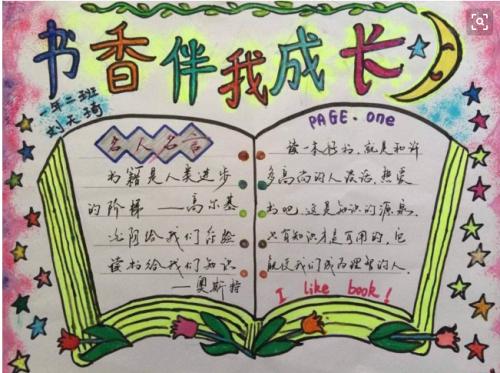 书香伴我成长
一年二班
刘天琦
名人名言
书籍是人类进步
的阶梯——高尔基
太阳给我们保险
读书给我们知识
——奥斯特
PAGE·one
读一本好书,就是和许
多高尚的人谈话,热爱
书吧,这是知识的源泉,
只有知识才是有用的,它
能使我们成为理智的人.
I like book!